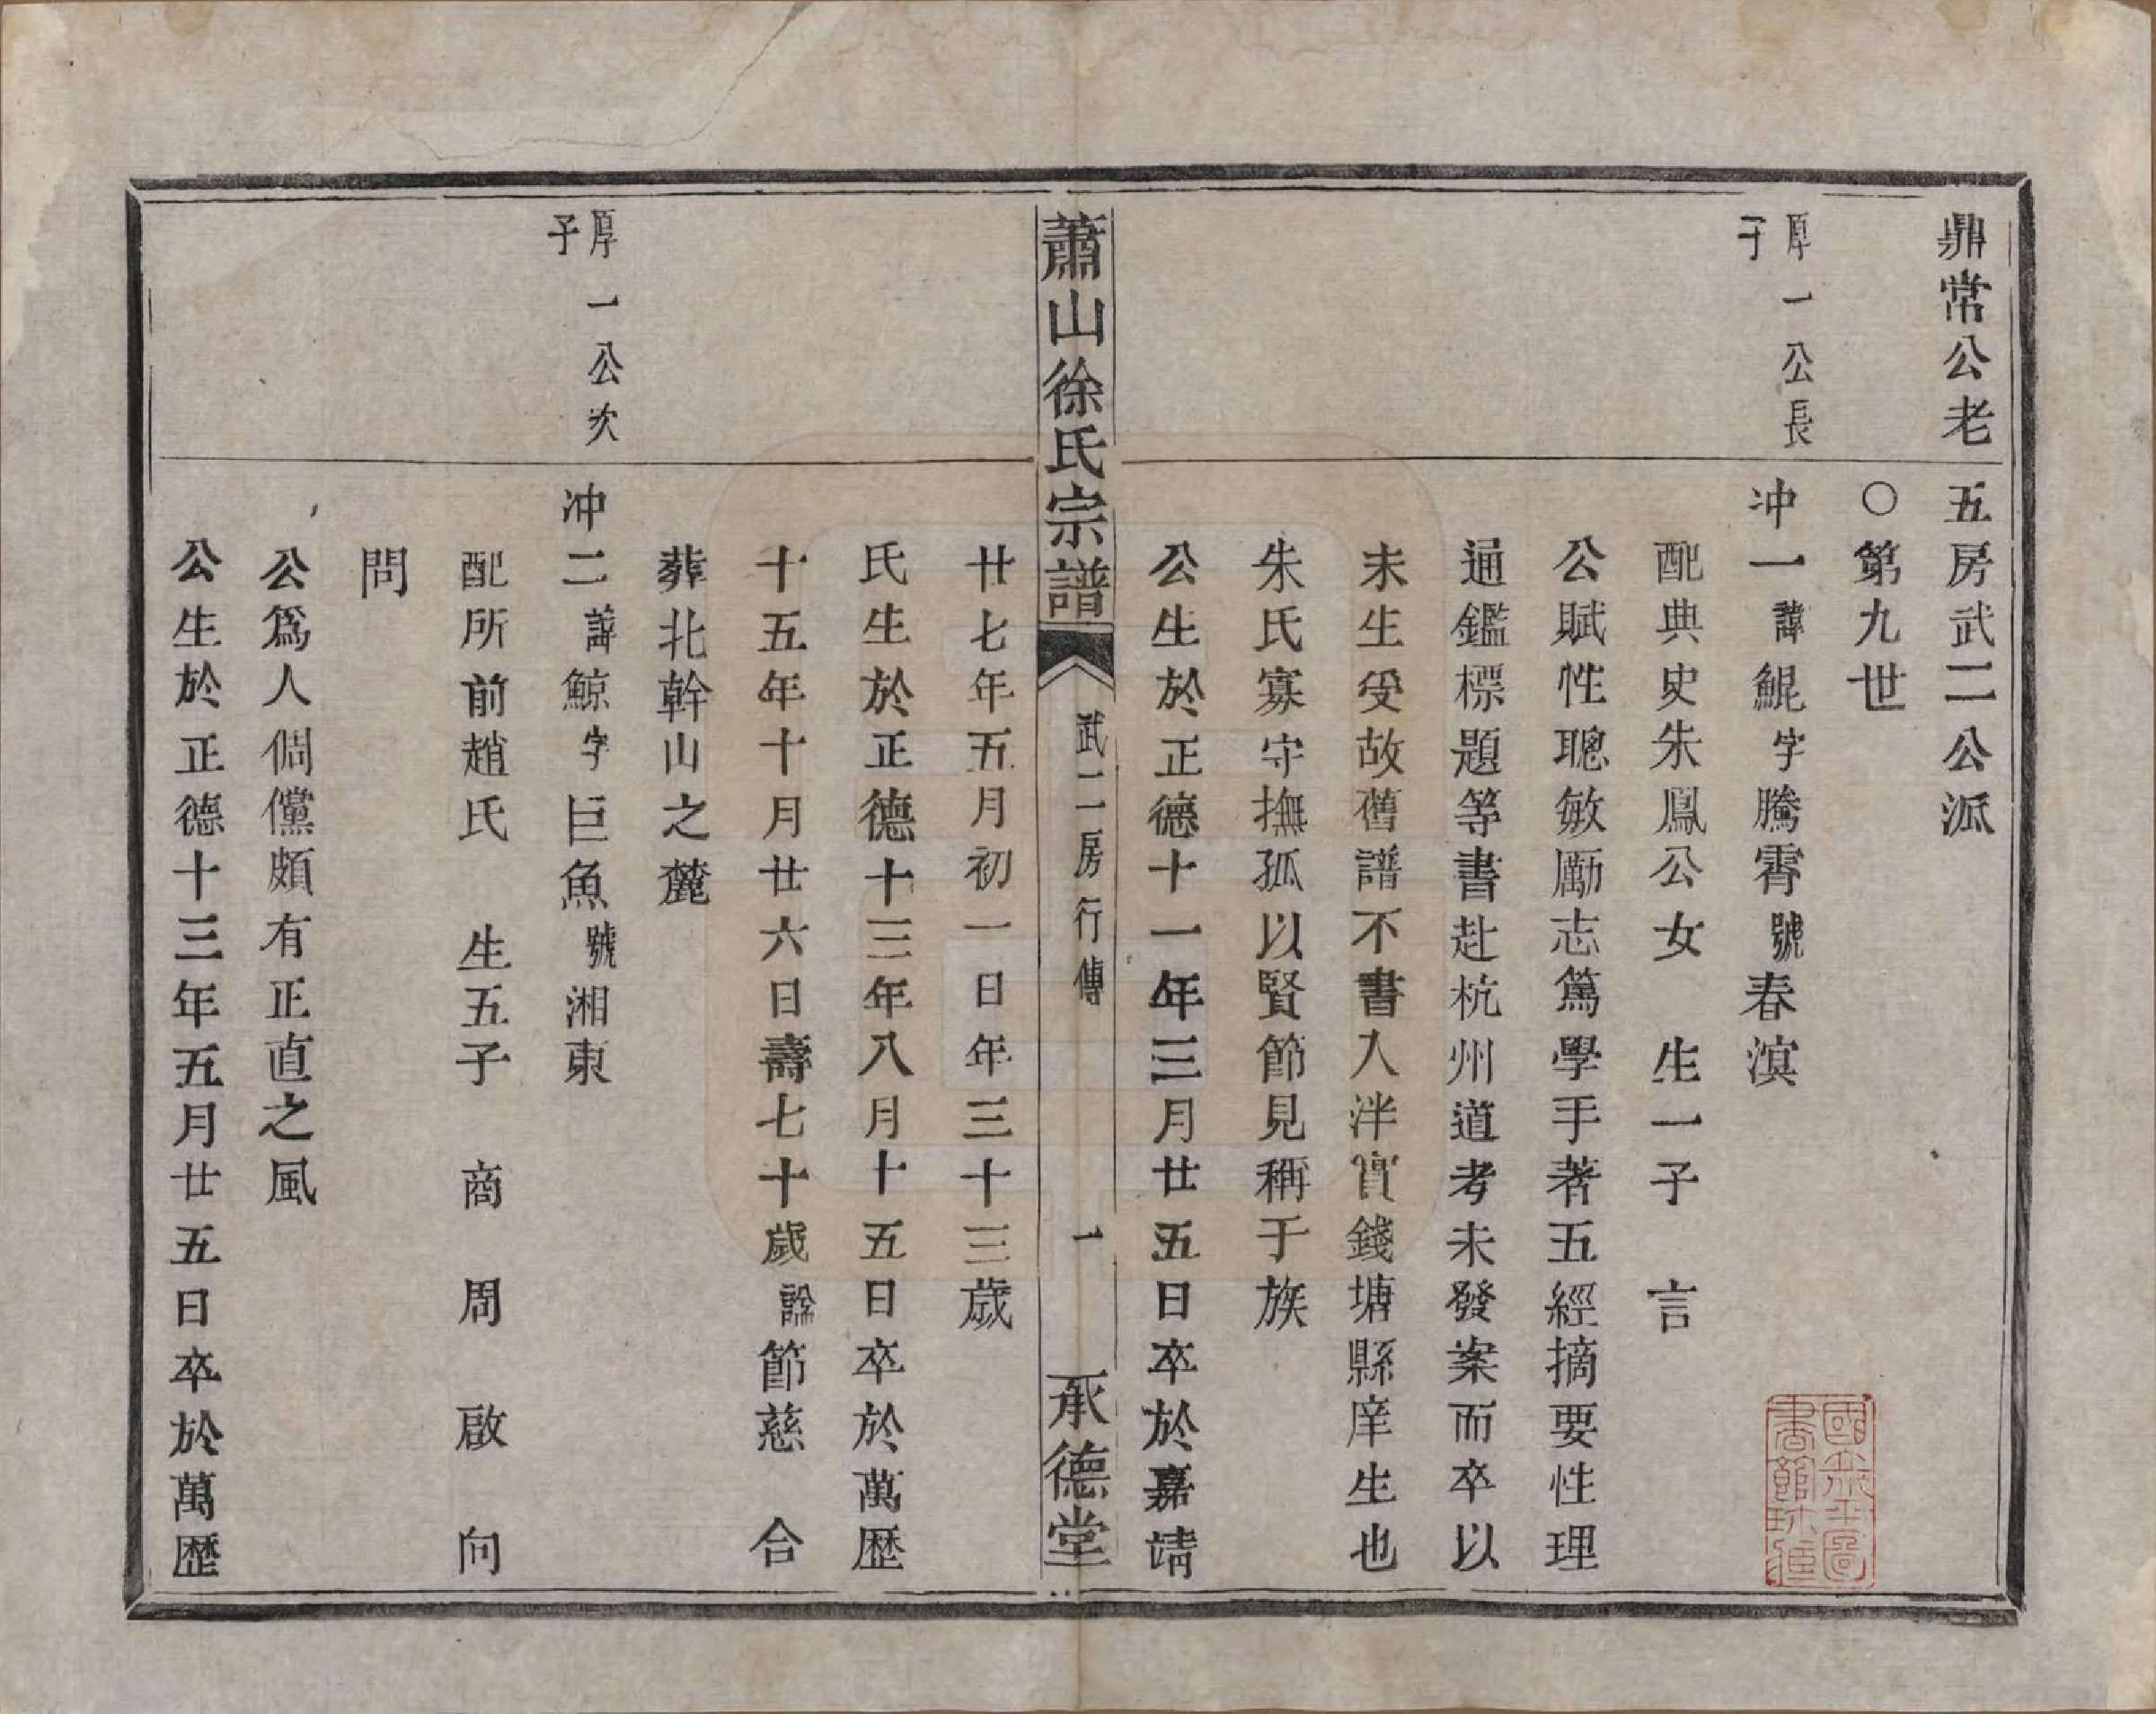 鼎常公老五房武二公派
○第九世
厚一公長子
冲一諱鯤字騰霄號春溟
配典史朱鳳公女　生一子　言
公賦性聰敏勵志篤學手著五經摘要性理
通鑑標題等書赴杭州道考未發案而卒以
未生受故舊譜不書入泮實錢塘縣庠生也
朱氏寡守撫孤以賢節見稱于族
公生於正德十一年三月廿五日卒於嘉靖
蕭山徐氏宗譜　武二房行傳　一　承德堂
廿七年五月初一日年三十三歲
氏生於正德十三年八月十五日卒於萬歷
十五年十月廿六日壽七十歲諡節慈　合
葬北幹山之麓
厚一公次子
冲二諱鯨字巨魚號湘東
配所前趙氏　生五子　商　周　啟　向
問
公為人倜儻頗有正直之風
公生於正德十三年五月廿五日卒於萬歷
國立北平圖書館珍藏